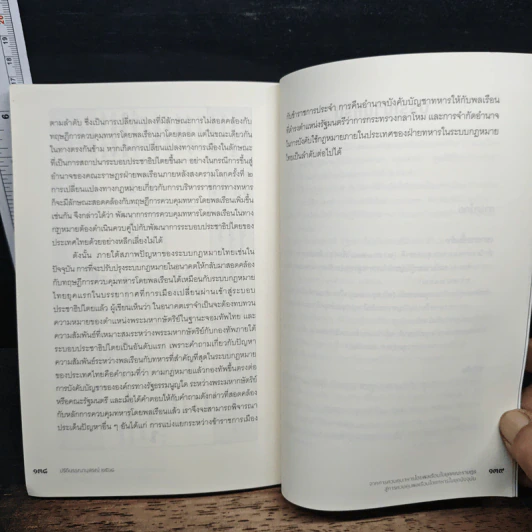 ตามลำดับ ซึ่งเป็นการเปลี่ยนแปลงที่มีลักษณะการไม่สอดคล้องกับ
ทฤษฎีการควบคุมทหารโดยพลเรือนมาโดยตลอด แต่ในขณะเดียวกัน
ในทางตรงกันข้าม หากเกิดการเปลี่ยนแปลงทางการเมืองในลักษณะ
ที่เป็นการสถาปนาระบอบประชาธิปไตยขึ้นมา อย่างในกรณีการขึ้นสู่
อำนาจของคณะราษฎรฝ่ายพลเรือนภายหลังสงครามโลกครั้งที่ ๒
การเปลี่ยนแปลงทางกฎหมายเกี่ยวกับการบริหารราชการทางทหาร
ก็จะมีลักษณะสอดคล้องกับทฤษฎีการควบคุมทหารโดยพลเรือนเพิ่มขึ้น
เช่นกัน จึงกล่าวได้ว่า พัฒนาการการควบคุมทหารโดยพลเรือนในทาง
กฎหมายต้องดำเนินควบคู่ไปกับพัฒนาการระบอบประชาธิปไตยของ
ประเทศไทยด้วยอย่างหลีกเลี่ยงไม่ได้
ดังนั้น ภายใต้สภาพปัญหาของระบบกฎหมายไทยเช่นใน
ปัจจุบัน การที่จะปรับปรุงระบบกฎหมายในอนาคตให้กลับมาสอดคล้อง
กับทฤษฎีการควบคุมทหารโดยพลเรือนได้เหมือนกับระบบกฎหมาย
ไทยยุคแรกในบรรยากาศที่การเมืองเปลี่ยนผ่านเข้าสู่ระบอบ
ประชาธิปไตยได้แล้ว ผู้เขียนเห็นว่า ในอนาคตเราจำเป็นจะต้องทบทวน
ความหมายของตำแหน่งพระมหากษัตริย์ในฐานะจอมทัพไทย และ
ความสัมพันธ์ที่เหมาะสมระหว่างพระมหากษัตริย์กับกองทัพภายใต้
ระบอบประชาธิปไตยเป็นอันดับแรก เพราะคำถามเกี่ยวกับปัญหา
ความสัมพันธ์ระหว่างพลเรือนกับทหารที่สำคัญที่สุดในระบบกฎหมาย
ของประเทศไทยคือคำถามที่ว่า ตามกฎหมายแล้วกองทัพขึ้นตรงต่อ
การบังคับบัญชาขององค์กรทางรัฐธรรมนูญใด ระหว่างพระมหากษัตริย์
หรือคณะรัฐมนตรี และเมื่อได้คำตอบให้กับคำถามดังกล่าวที่สอดคล้อง
กับหลักการควบคุมทหารโดยพลเรือนแล้ว เราจึงจะสามารถพิจารณา
ประเด็นปัญหาอื่น ๆ อันได้แก่ การแบ่งแยกระหว่างข้าราชการเมือง
๑๓๘
กับข้าราชการประจำ การคืนอำนาจบังคับบัญชาทหารให้กับพลเรือน
ที่ดำรงตำแหน่งรัฐมนตรีว่าการกระทรวงกลาโหม และการจำกัดอำนาจ
ในการบังคับใช้กฎหมายภายในประเทศของฝ่ายทหารในระบบกฎหมาย
ไทยเป็นลำดับต่อไปได้
๑๓๙